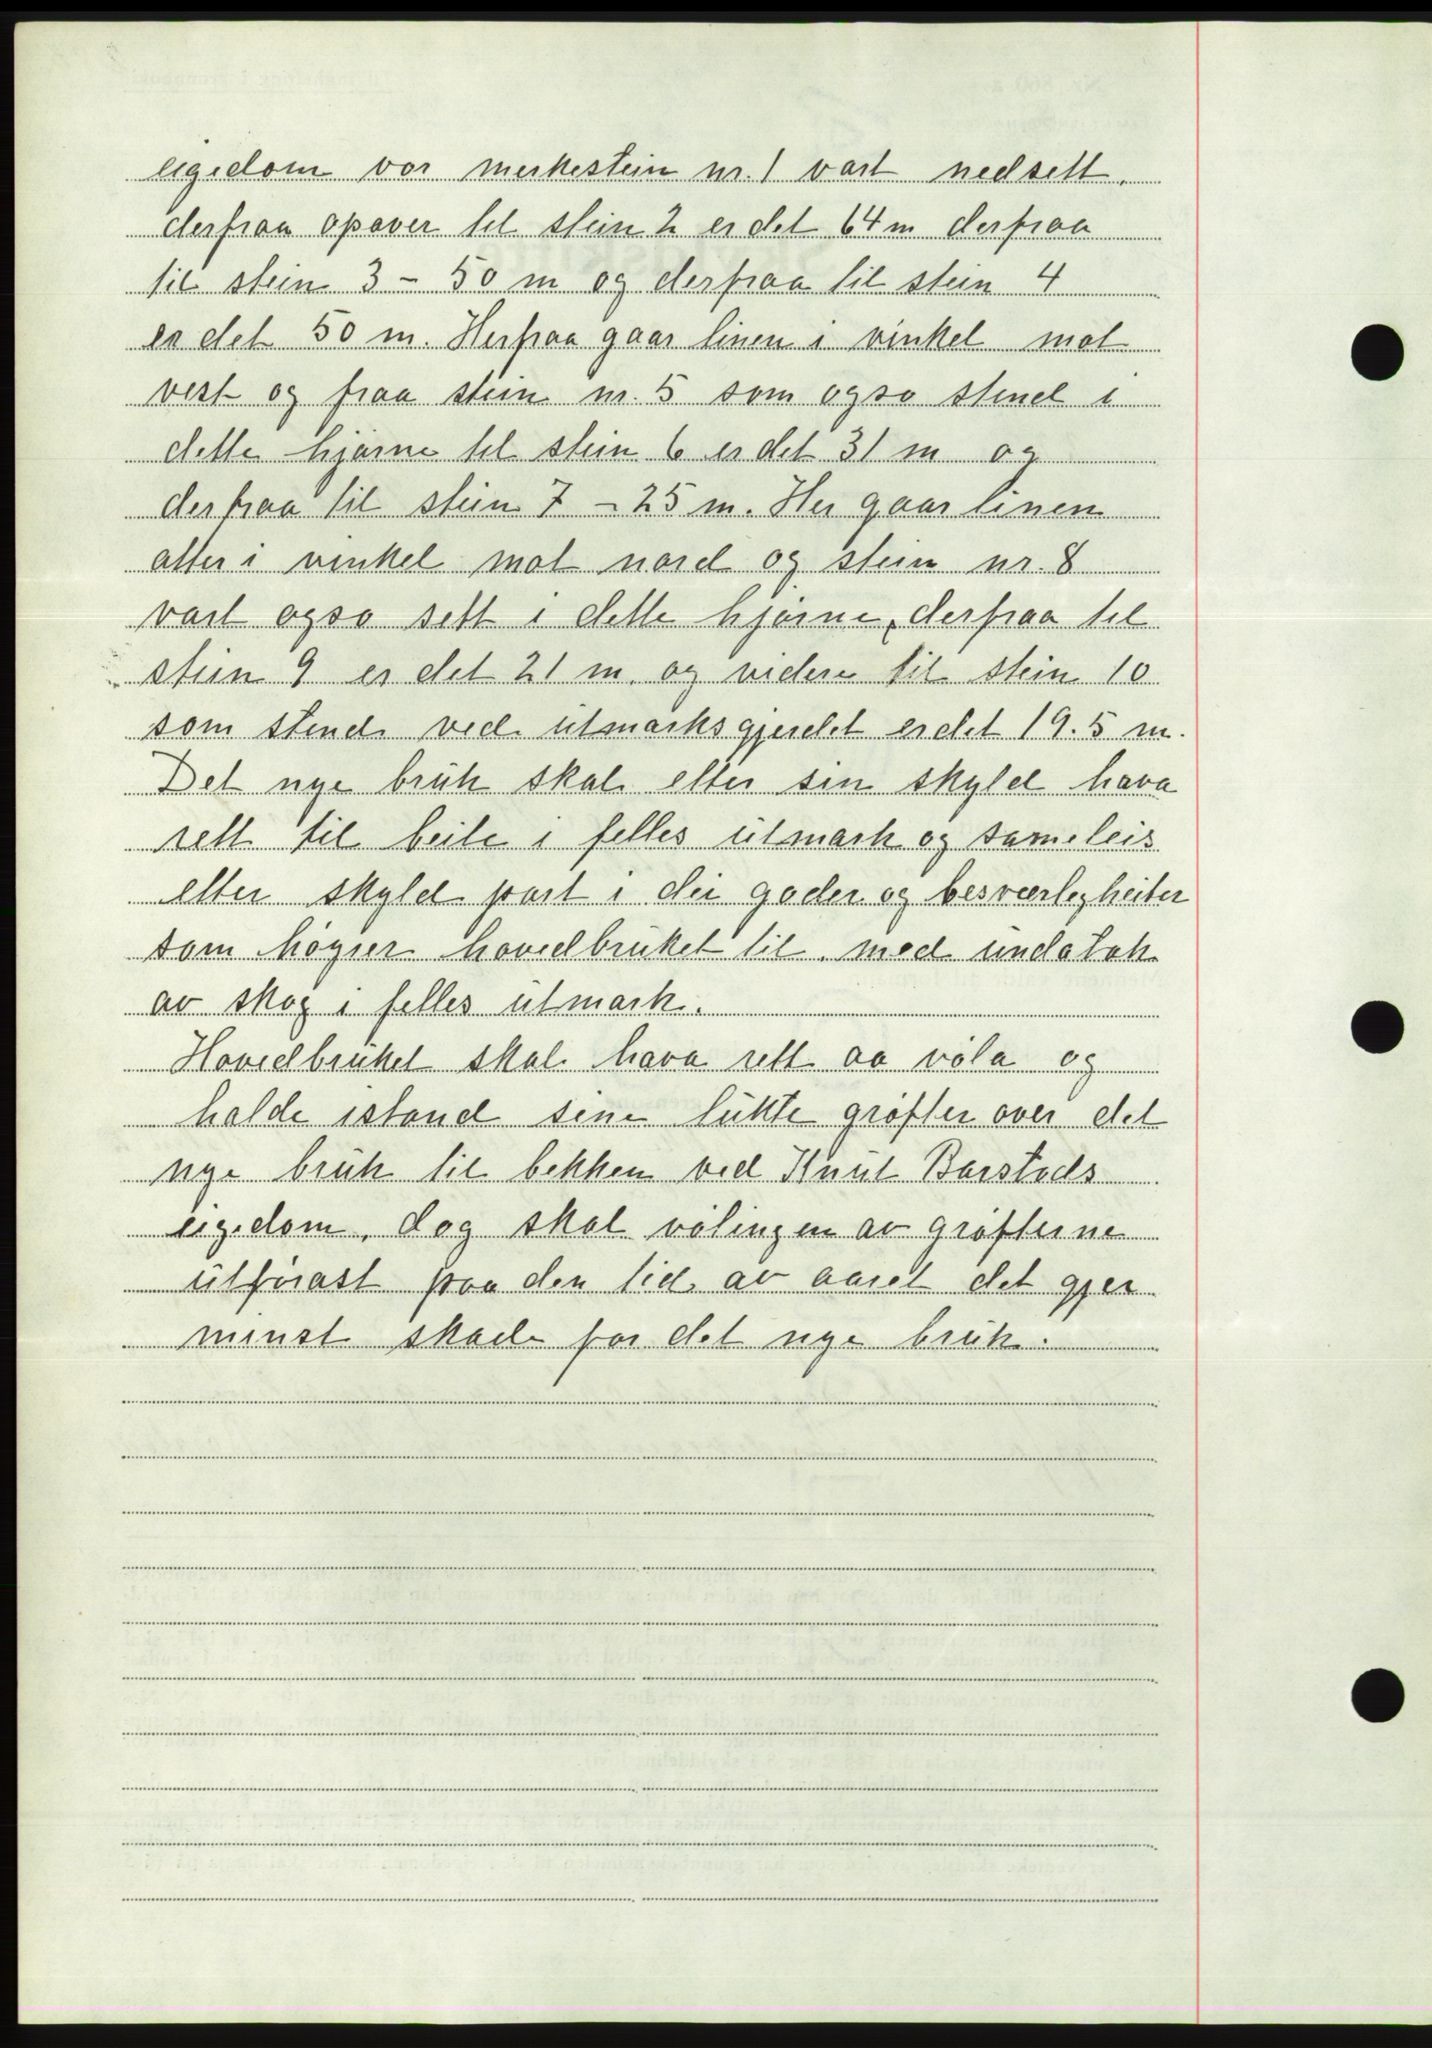 eigedom vor merkestein nr. 1 vart nedsett.
derfraa opover til stein 2 er det 64 m derfraa
til stein 3 – 50 m og derfraa til stein 4
er det 50 m. Herfraa gaar linen i vinkel mot
vest og fraa stein nr. 5 som ogso stend i
dette hjørne til stein 6 er det 31 m og
derfraa til stein 7 – 25 m. Her gaar linen
atter i vinkel mot nord og stein nr. 8
vart ogso sett i dette hjørne, derfraa til
stein 9 er det 21 m. og videre til stein 10
som stend ved utmarksgjerdet er det 19.5 m.
Det nye bruk skal etter sin skyld hava
rett til beite i felles utmark og sameleis
etter skyld part i dei goder og besværlegheiter
som høyrer hovedbruket til. med undatak
av skog i felles utmark.
Hovedbruket skal hava rett aa vøla og
halde istand sine lukte grøfter over det
nye bruk til bekken ved Knut Barstads
eigedom, dog skal vølingen av grøfterne
utførast paa den tid av aaret det gjer
minst skade for det nye bruk.